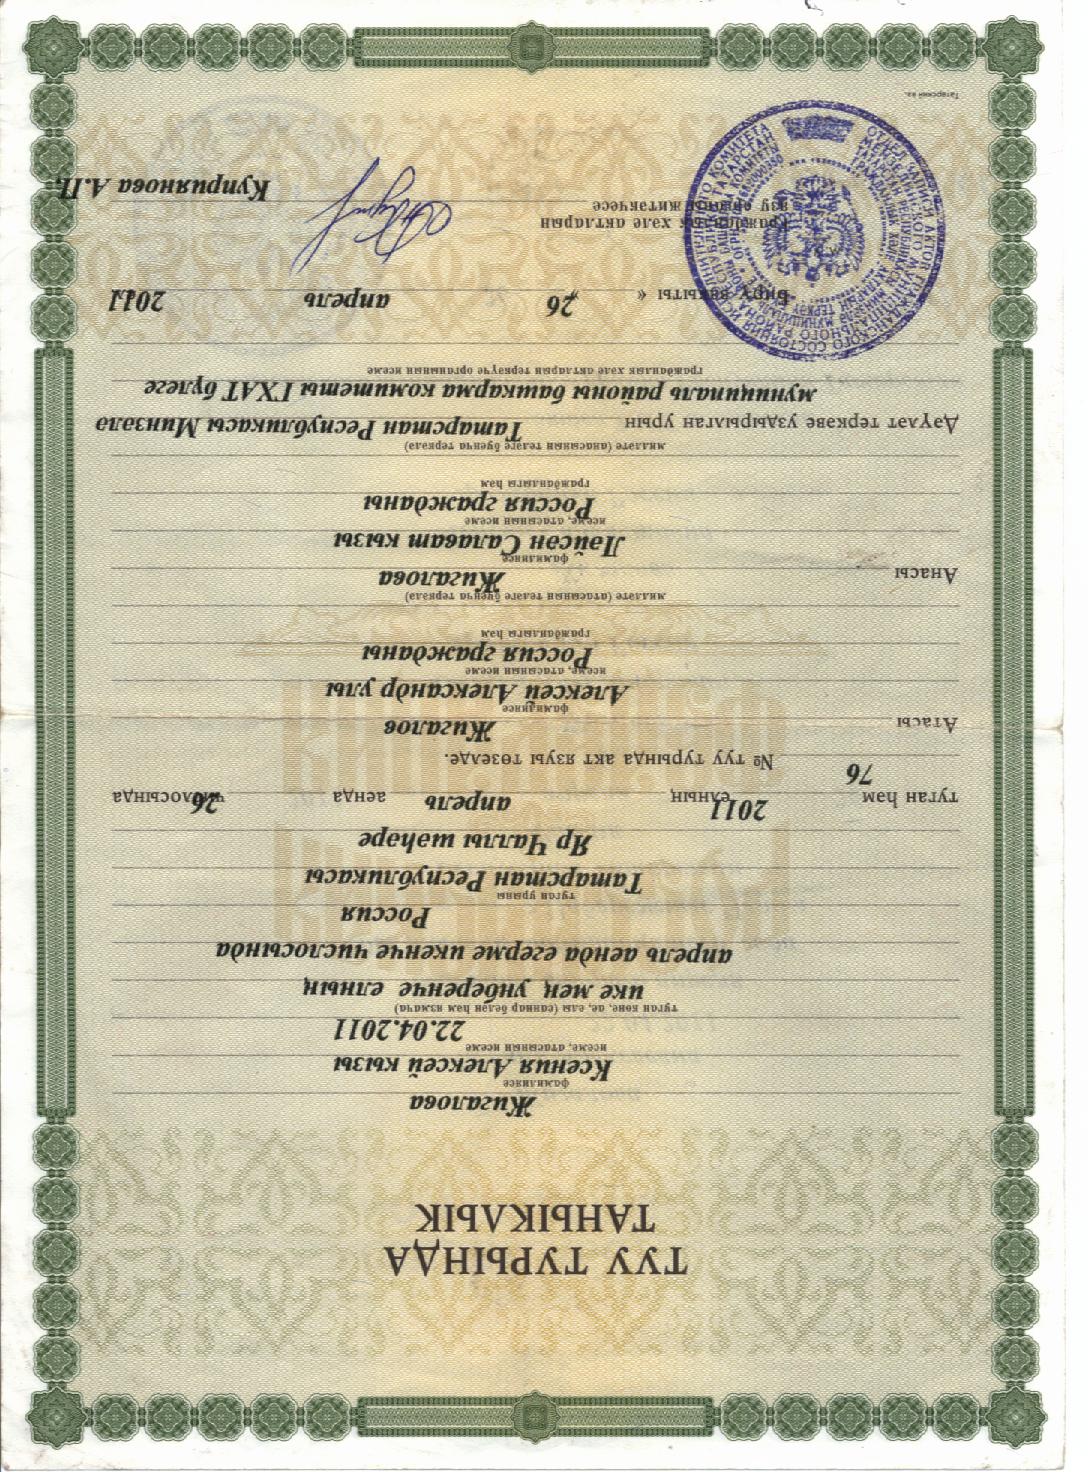 ТУУ ТУРЫНДА
ТАНЫКЛЫК
Жигалова
фамилиясе
Ксения Алексей кызы
исеме, атасының исеме
22.04.2011
туган көне, ае, елы (саннар белән һәм язмача)
ике мең унберенче елның
апрель аенда егерме икенче числосында
Россия
туган урыны
Татарстан Республикасы
Яр Чаллы шәһәре
туган һәм 2011 елның апрель аенда 26 числосында
76
№ туу турында акт язуы төзелде.
Атасы Жигалов
фамилиясе
Алексей Александр улы
исеме, атасының исеме
Россия гражданы
гражданлыгы һәм
милләте (атасының теләге буенча теркәлә)
Анасы Жигалова
фамилиясе
Ләйсән Салават кызы
исеме, атасының исеме
Россия гражданы
гражданлыгы һәм
милләте (анасының теләге буенча теркәлә)
Дәүләт теркәве уздырылган урын Татарстан Республикасы Минзәлә
муниципаль районы башкарма комитеты ГХАТ бүлеге
гражданлык хәле актларын теркәүче органның исеме
Бирү вакыты « 26 » апрель 2011
Гражданлык хәле актларын
язу органы җитәкчесе
Куприянова А.П.
Татарский яз.